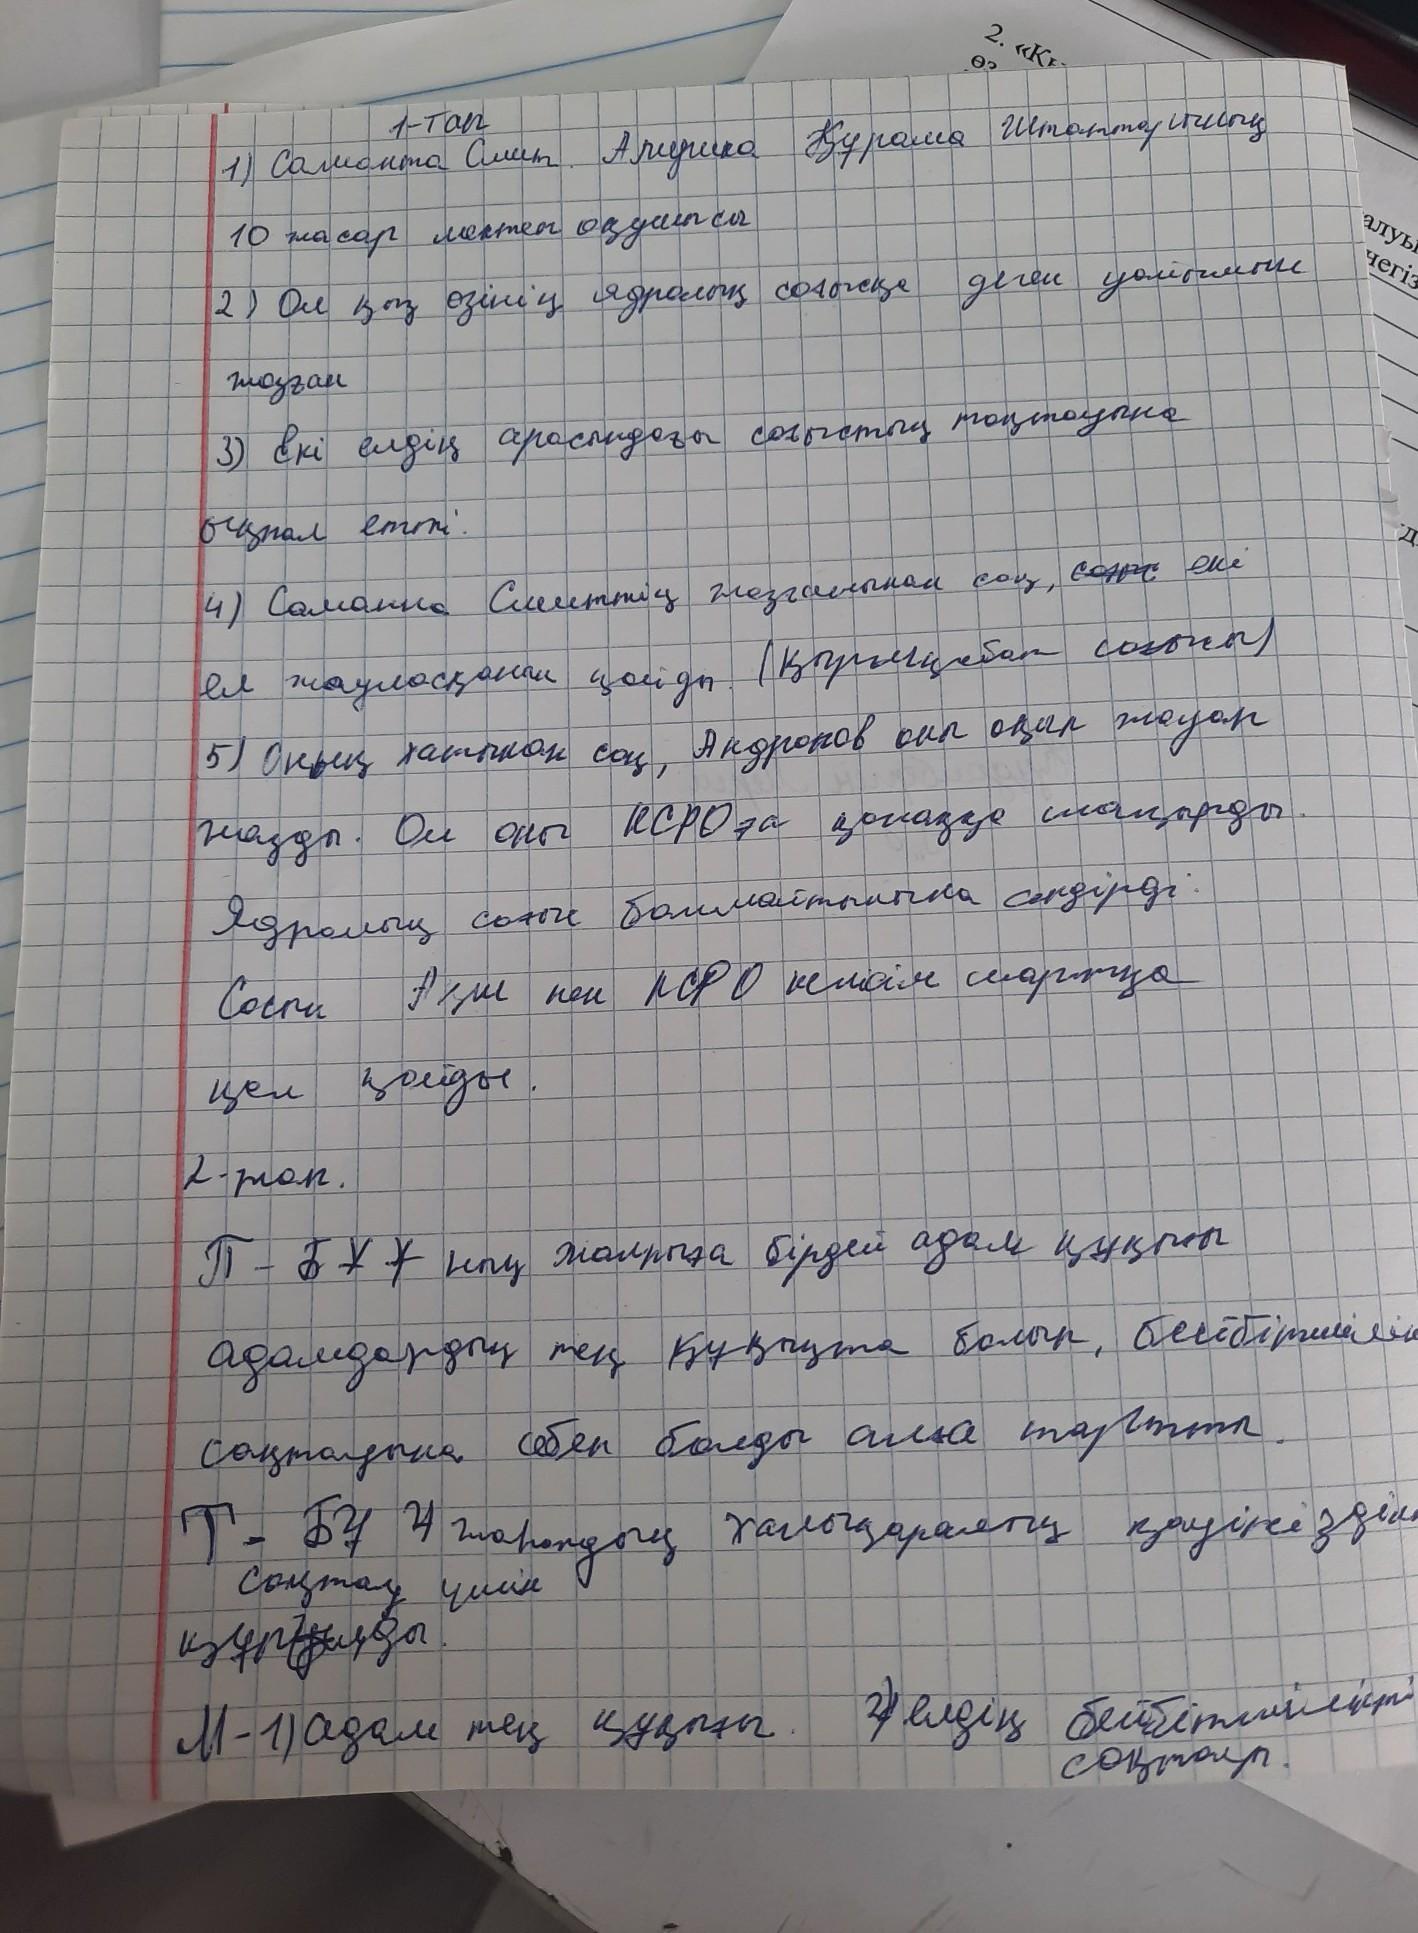 2. «Кү
өз
алуы
негіз
1-тап
1) Саманта Смит. Америка Құрама Штаттарының
10 жасар мектеп оқушысы
2) Ол қыз өзінің ядролық соғысқа деген уайымын
жазған
3) Екі елдің арасындағы соғыстың тоқтауына
ықпал етті.
4) Саманта Смиттің жазғанынан соң, екі
ел жауласқанын қойды. (Қырғиқабат соғысы)
5) Оның хатынан соң, Андропов оны оқып жауап
жазды. Ол оны КСРОға қонаққа шақырды.
Ядролық соғыс болмайтынына сендірді.
Сосын АҚШ пен КСРО келісім шартқа
қол қойды.
2-тап.
П - БҰҰ ның жалпыға бірдей адам құқығы
адамдардың тең құқықта болып, бейбітшілік
сақталуына себеп болды алға тартты.
Т - БҰҰ жаһандық халықаралық қауіпсіздік
сақтау үшін
құрылды.
М - 1) адам тең құқығы. 2) елдің бейбітшілікті
сақтауы.